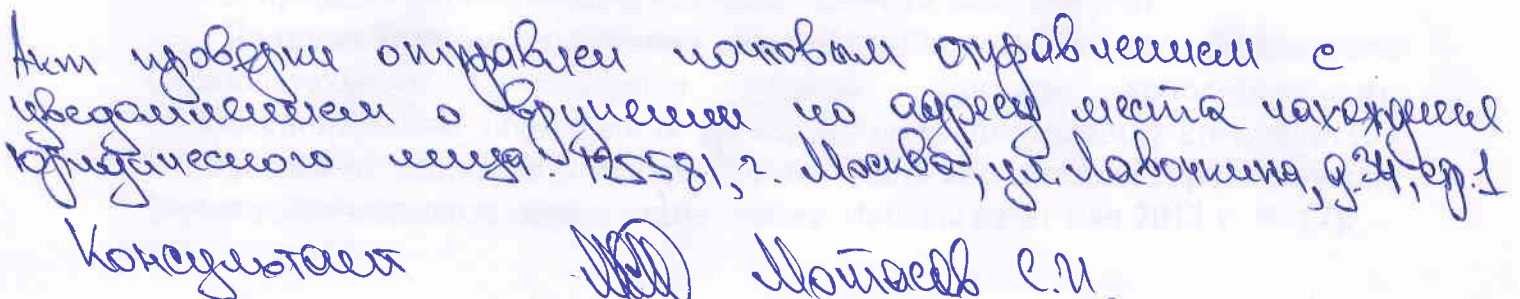 Акт проверки отправлен почтовым отправлением с
уведомлением о вручении по адресу места нахождения
юридического лица: 125581, г. Москва, ул. Лавочкина, д. 34, стр. 1
Консультант С.И.